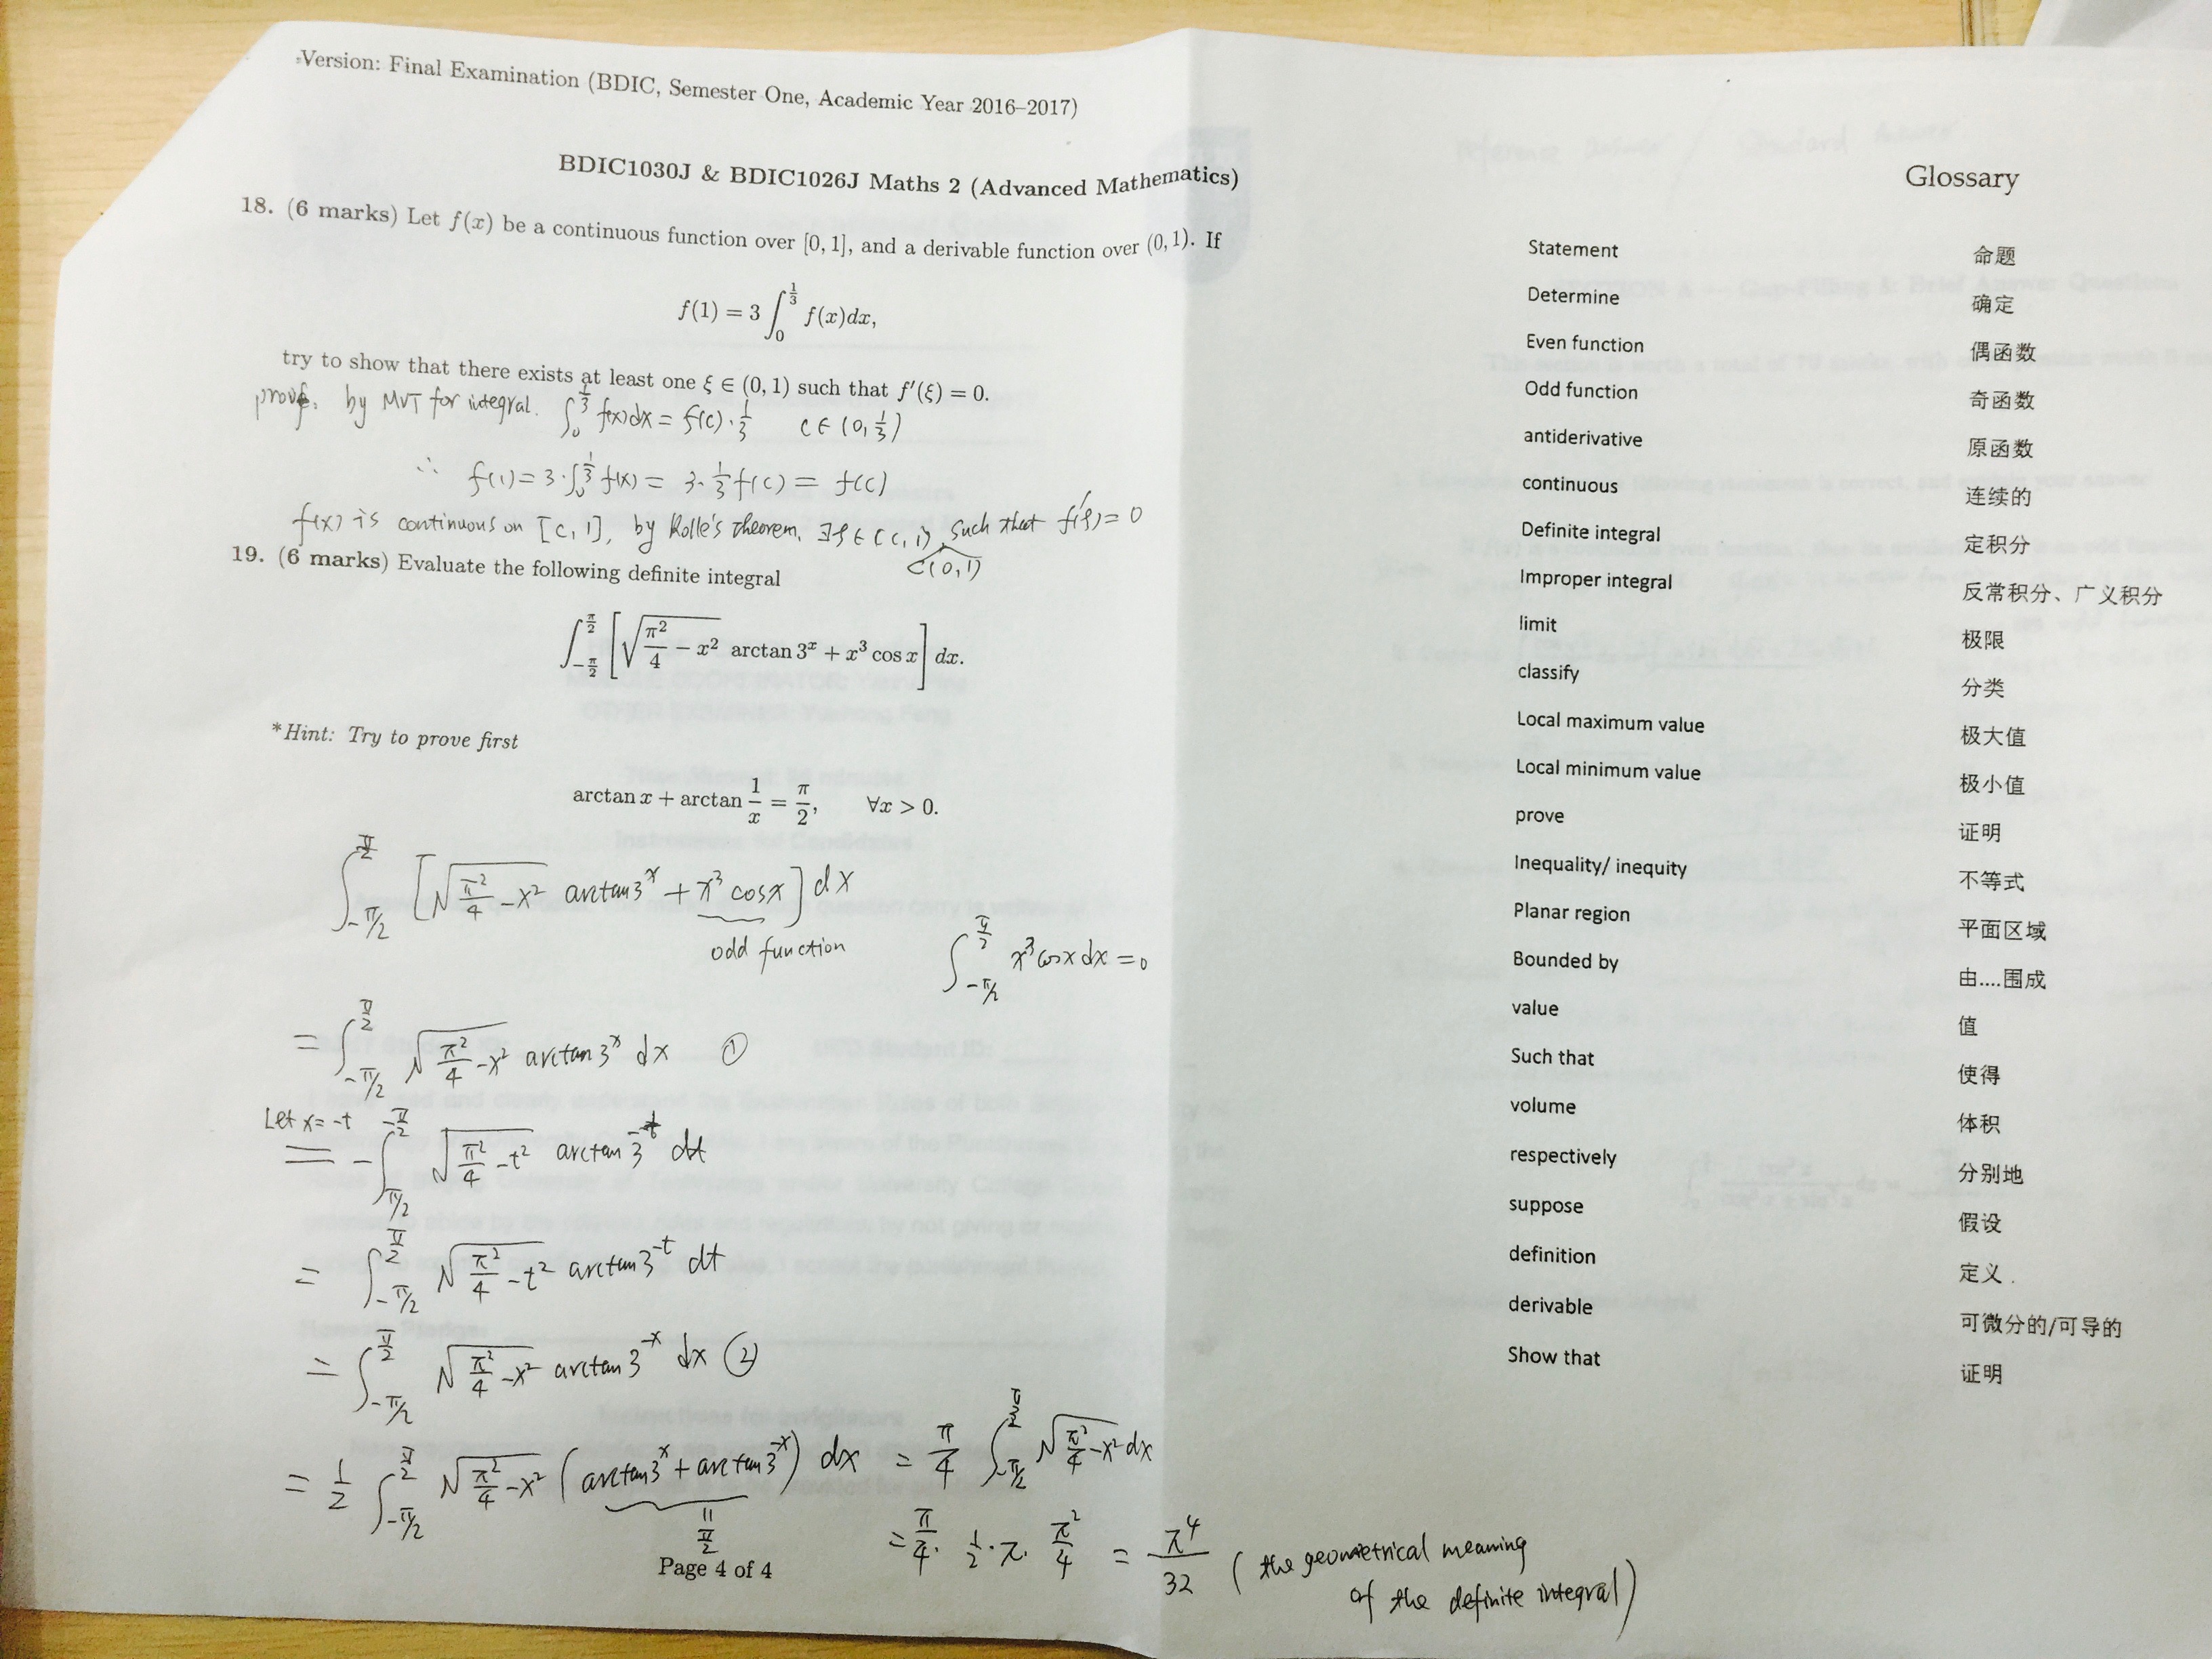 Version: Final Examination (BDIC, Semester One, Academic Year 2016–2017)
BDIC1030J & BDIC1026J Maths 2 (Advanced Mathematics)
18. (6 marks) Let f(x) be a continuous function over [0, 1], and a derivable function over (0, 1). If
f(1) = 3 ∫_0^{1/3} f(x)dx,
try to show that there exists at least one ξ ∈ (0, 1) such that f′(ξ) = 0.
prove. by MVT for integral. ∫_0^{1/3} f(x)dx = f(c)·1/3 c∈(0,1/3)
∴ f(1) = 3·∫_0^{1/3} f(x) = 3·1/3 f(c) = f(c)
f(x) is continuous on [c,1], by Rolle's theorem, ∃ξ∈(c,1), such that f′(ξ)=0
⊂(0,1)
19. (6 marks) Evaluate the following definite integral
∫_{-π/2}^{π/2} [√(π²/4 − x²) arctan 3^x + x³ cos x] dx.
*Hint: Try to prove first
arctan x + arctan 1/x = π/2, ∀x > 0.
∫_{-π/2}^{π/2} [√(π²/4 − x²) arctan3^x + x³ cosx] dx
odd function
∫_{-π/2}^{π/2} x³cosx dx = 0
= ∫_{-π/2}^{π/2} √(π²/4 − x²) arctan3^x dx ①
Let x = -t
= -∫_{π/2}^{-π/2} √(π²/4 − t²) arctan3^{-t} dt
= ∫_{-π/2}^{π/2} √(π²/4 − t²) arctan3^{-t} dt
= ∫_{-π/2}^{π/2} √(π²/4 − x²) arctan3^{-x} dx ②
= 1/2 ∫_{-π/2}^{π/2} √(π²/4 − x²) (arctan3^x + arctan3^{-x}) dx = π/4 ∫_{-π/2}^{π/2} √(π²/4 − x²) dx
= π/2
= π/4 · 1/2 · π · π²/4 = π⁴/32 (the geometrical meaning
of the definite integral)
Page 4 of 4
Glossary
Statement 命题
Determine 确定
Even function 偶函数
Odd function 奇函数
antiderivative 原函数
continuous 连续的
Definite integral 定积分
Improper integral 反常积分、广义积分
limit 极限
classify 分类
Local maximum value 极大值
Local minimum value 极小值
prove 证明
Inequality/ inequity 不等式
Planar region 平面区域
Bounded by 由....围成
value 值
Such that 使得
volume 体积
respectively 分别地
suppose 假设
definition 定义
derivable 可微分的/可导的
Show that 证明